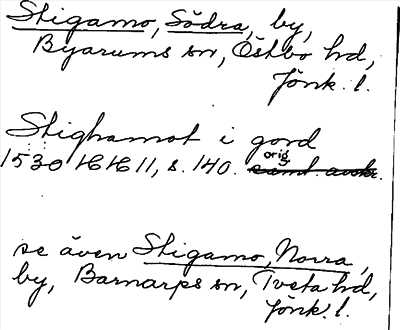 Stigamo, Södra, by,
Byarums sn, Östbo hd,
Jönk. l.
Stighamot i gord
1530 HH 11, s. 140. orig. samt. avskr.
se även Stigamo, Norra,
by, Barnarps sn, Tveta hd,
Jönk. l.